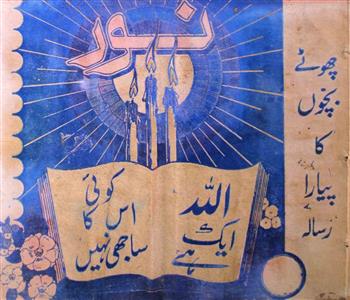 نور
چھوٹے
بچوں
کا
پیارا
رسالہ
اللہ
ایک
ہے
کوئی
اس کا
ساجھی نہیں